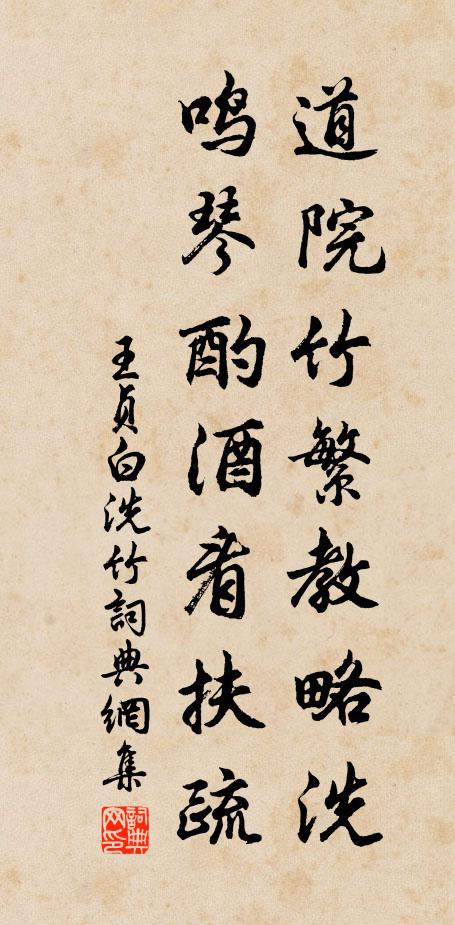 道院竹繁教略洗
鸣琴酌酒看扶疏
王贞白洗竹詞典網集
詞典网印